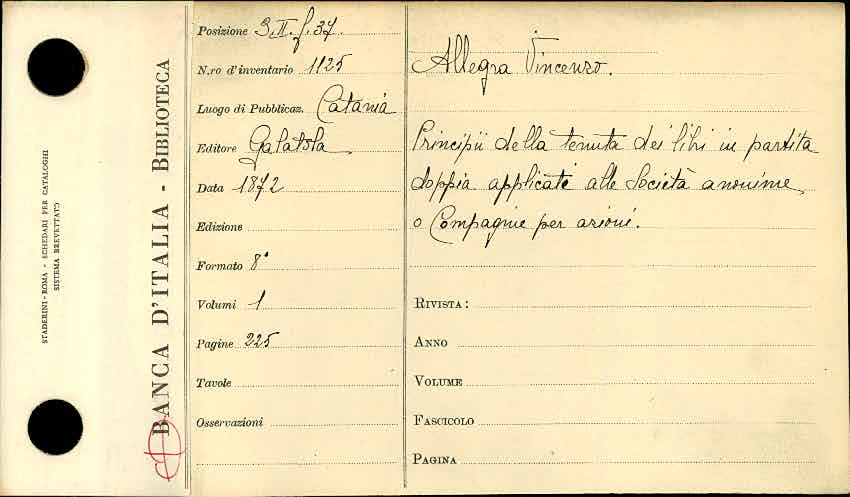 STADERINI - ROMA - SCHEDARI PER CATALOGHI
SISTEMA BREVETTATO
BANCA D'ITALIA - BIBLIOTECA
Posizione 3.II.f.37
N.ro d'inventario 1125
Luogo di Pubblicaz. Catania
Editore Galatola
Data 1872
Edizione
Formato 8°
Volumi 1
Pagine 225
Tavole
Osservazioni
Allegra Vincenzo.
Principii della tenuta dei libri in partita
doppia applicati alle Società anonime
o Compagnie per azioni.
RIVISTA:
ANNO
VOLUME
FASCICOLO
PAGINA